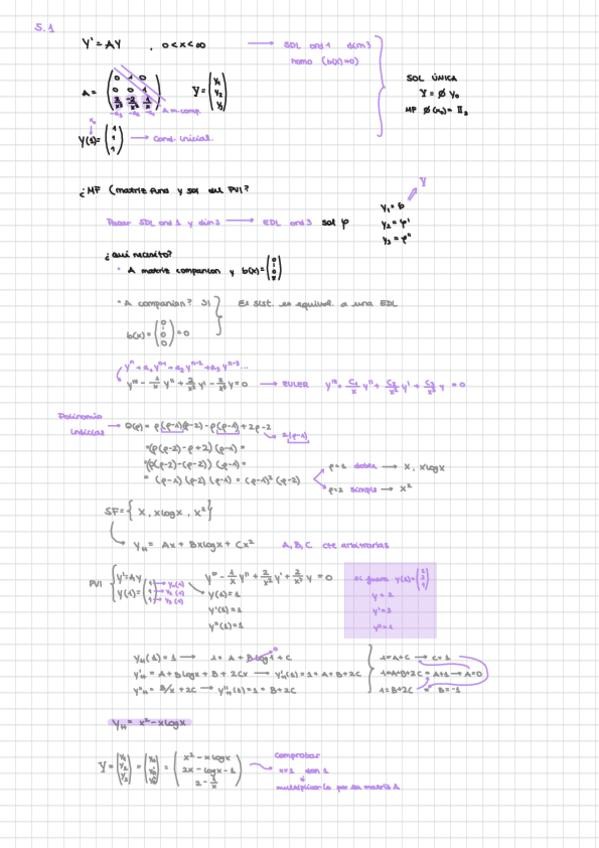 5.1
Y' = AY , 0<x<∞ → SDL ord 1 dim 3
homo (b(x)=0)
A = (0 1 0 / 0 0 1 / 2/x³ -2/x² 1/x) Y = (y₁ / y₂ / y₃)
-a₃ -a₂ -a₁ A m. comp.
SOL ÚNICA
Y = Ø Y₀
MF Ø(x₀) = II₃
x₀
Y(1) = (1 / 1 / 1) → Cond. inicial.
¿MF (matriz fund y sol del PVI?
Pasar SDL ord 1 y dim 3 → EDL ord 3 sol φ
Y
y₁ = φ
y₂ = φ'
y₃ = φ''
¿qué necesito?
• A matriz companion y b(x) = (0 / 0 / *)
• A companion? SI } El sist. es equival. a una EDL
b(x) = (0 / 0 / 0) = 0
yⁿ + a₁yⁿ⁻¹ + a₂yⁿ⁻² + a₃yⁿ⁻³...
y''' - 1/x y'' + 2/x² y' - 2/x³ y = 0 → EULER y''' + C₁/x y'' + C₂/x² y' + C₃/x³ y = 0
Polinomio indicial → Q(ρ) = ρ(ρ-1)(ρ-2) - ρ(ρ-1) + 2ρ - 2
2(ρ-1)
= (ρ(ρ-2) - ρ + 2)(ρ-1) =
= (ρ(ρ-2) - (ρ-2)) (ρ-1) =
= (ρ-1) (ρ-2) (ρ-1) = (ρ-1)² (ρ-2)
ρ=1 doble → x, xlogx
ρ=2 simple → x²
SF = { x, xlogx, x² }
Y_H = Ax + Bxlogx + Cx² A, B, C cte arbitrarias
PVI { Y' = AY
Y(1) = (1 / 1 / 1) → y₁(1) → y₂(1) → y₃(1)
y''' - 1/x y'' + 2/x² y' + 2/x³ y = 0
y(1) = 1
y'(1) = 1
y''(1) = 1
si fuera y(1) = (2 / 3 / 1)
y = 2
y' = 3
y'' = 1
Y_H(1) = 1 → 1 = A + B log 1 + C
y'_H = A + B logx + B + 2Cx → y'_H(1) = 1 = A + B + 2C
y''_H = B/x + 2C → y''_H(1) = 1 = B + 2C
1 = A + C → C = 1
1 = A+B+2C = A+1 → A=0
1 = B+2C = B = -1
Y_H = x² - xlogx
Y = (y₁ / y₂ / y₃) = (y_H / y'_H / y''_H) = (x² - xlogx / 2x - logx - 1 / 2 - 1/x)
Comprobar
x=1 dan 1
multiplicarla por su matriz A